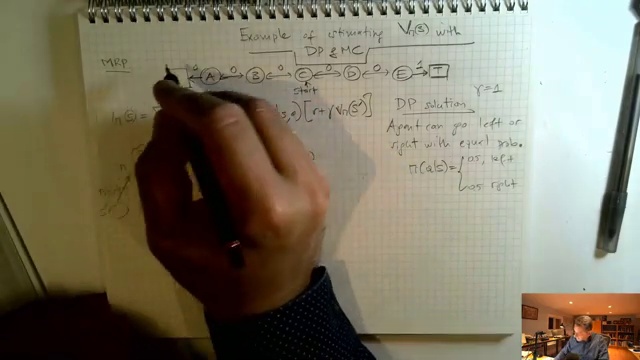 Example of estimating Vπ(s) with
DP & MC
MRP
0 A 0 B 0 C 0 D 0 E 1 T
Start
γ=1
Vπ(s)= s,a) [r+γVπ(s')]
DP solution
Agent can go left or
right with equal prob.
π(a|s)= { 0.5, left
0.5 right